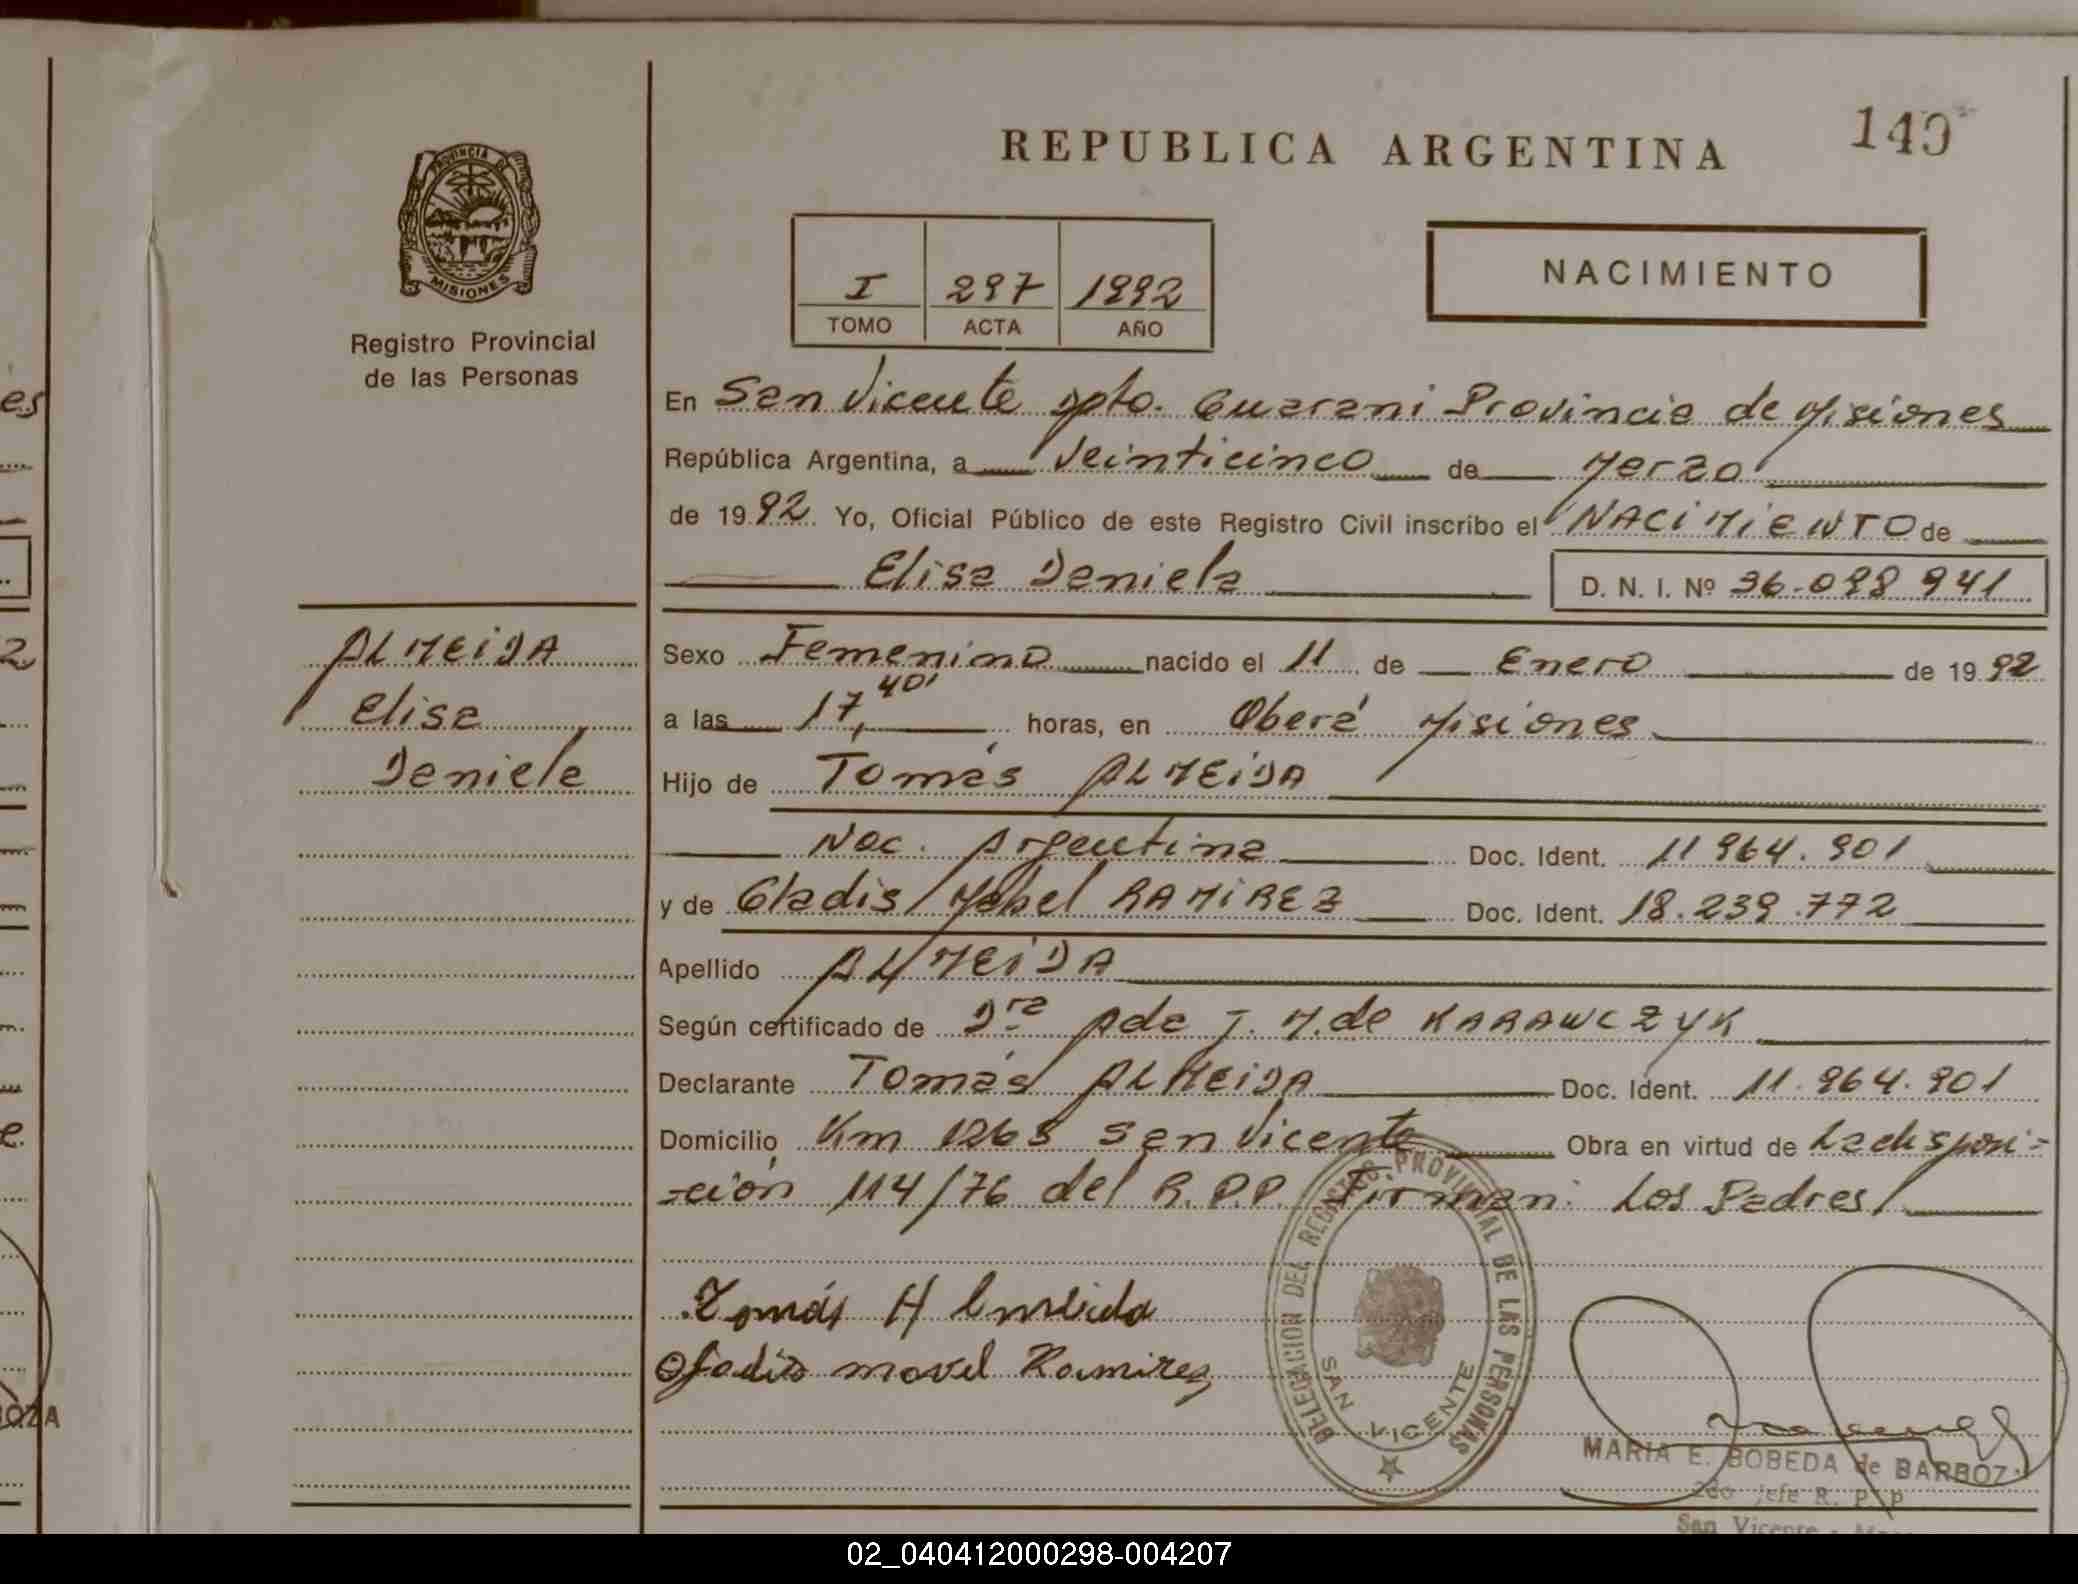 REPUBLICA ARGENTINA
149
PROVINCIA D
MISIONES
Registro Provincial
de las Personas
I 297 1992
TOMO ACTA AÑO
NACIMIENTO
En San Vicente Dpto. Guarani Provincia de Misiones
República Argentina, a Veinticinco de Marzo
de 1992 Yo, Oficial Público de este Registro Civil inscribo el NACIMIENTO de
Elisa Daniela D. N. I. Nº 36.098 941
ALMEIDA
Elisa
Daniela
Sexo Femenino nacido el 11 de Enero de 1992
a las 17,40' horas, en Oberá Misiones
Hijo de Tomás ALMEIDA
Nac. Argentina Doc. Ident. 11 964.901
y de Gladis Mabel RAMIREZ Doc. Ident. 18.239.772
Apellido ALMEIDA
Según certificado de Dra Ada J. M. de KARAWCZYK
Declarante Tomás ALMEIDA Doc. Ident. 11.964.901
Domicilio Km 1265 San Vicente Obra en virtud de La disposi=
=ción 114/76 del R.P.P. Firman: Los Padres/
Tomás Almeida
Gladis mavel Ramirez
DELEGACION DEL REGISTRO PROVINCIAL DE LAS PERSONAS
SAN VICENTE
MARIA E. BOBEDA de BARBOZ
2do Jefe R. P. P
San Vicente -
02_040412000298-004207